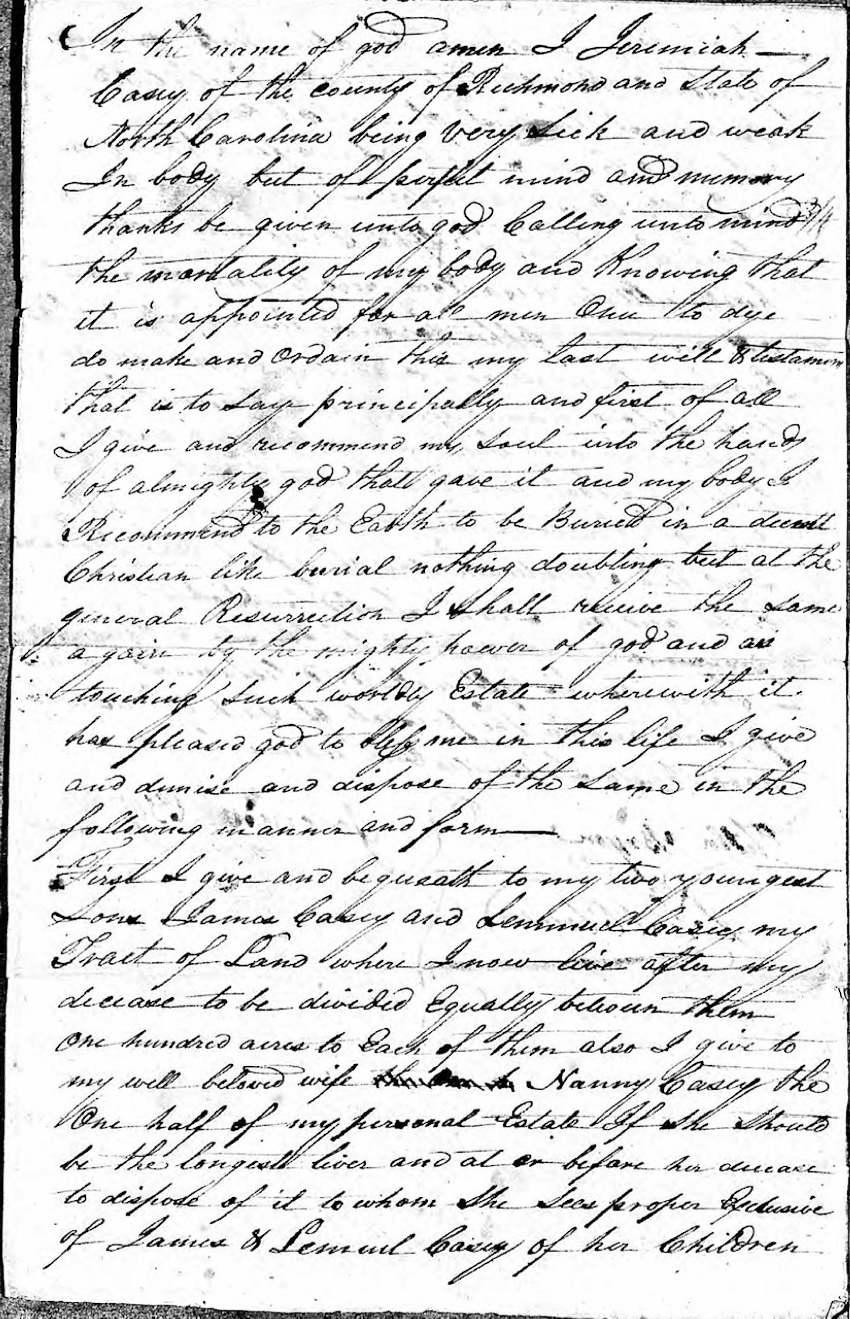 In the name of god amen I Jeremiah
Casey of the county of Richmond and State of
North Carolina being very sick and weak
In body but of perfect mind and memory
thanks be given unto god Calling unto mind
the mortality of my body and Knowing that
it is appointed for all men Once to dye
do make and Ordain this my last will & testament
that is to say principally and first of all
I give and recommend my Soul into the hands
of almighty god that gave it and my body I
Recommend to the Earth to be Buried in a decent
Christian like burial nothing doubting but at the
general Resurrection I shall receive the same
again by the mighty power of god and as
touching such worldly Estate wherewith it
has pleased god to bless me in this life I give
and demise and dispose of the same in the
following manner and form
First I give and bequeath to my two youngest
Sons James Casey and Lemmuel Casey my
Tract of Land where I now live after my
decease to be divided Equally between them
One hundred acres to Each of them also I give to
my well beloved wife Nanny Casey the
One half of my personal Estate If she should
be the longest liver and at or before her decease
to dispose of it to whom She Sees proper Exclusive
of James & Lemuel Casey of her Children